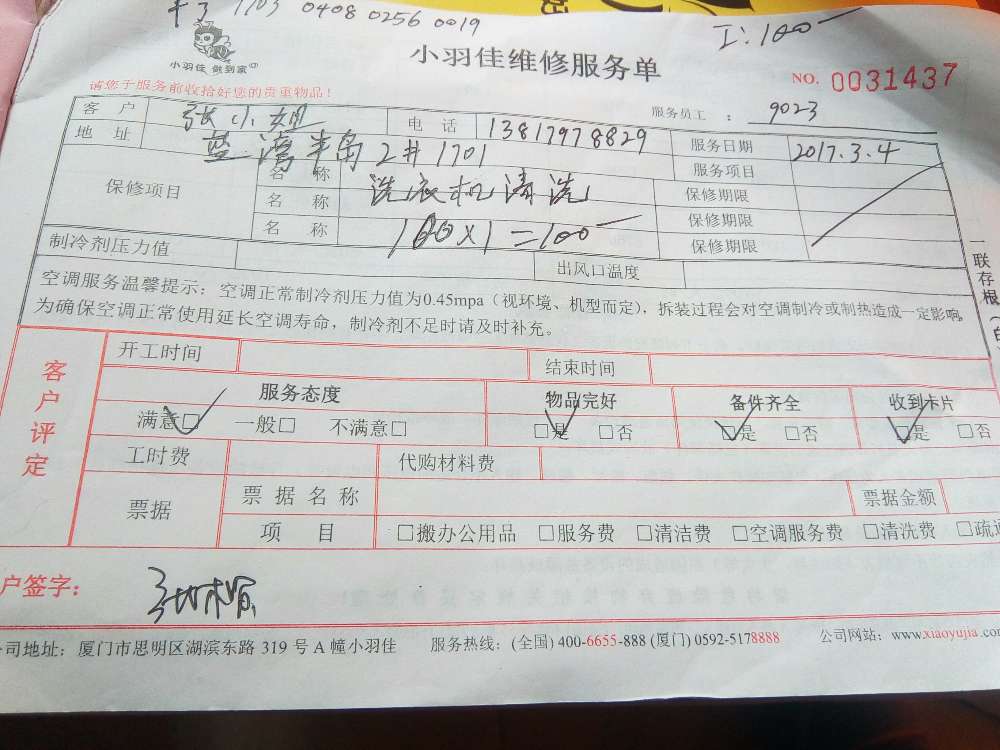 1703 0408 0256 0019
I:100
小羽佳 做到家
小羽佳维修服务单
NO. 0031437
请您于服务前收拾好您的贵重物品!
服务员工 : 9023
客 户 张小姐 电 话 13817978829 服务日期 2017.3.4
地 址 蓝湾半岛2#1701 服务项目
保修项目 名 称 洗衣机清洗 保修期限
名 称 保修期限
名 称 100×1=100 保修期限
制冷剂压力值 出风口温度
空调服务温馨提示:空调正常制冷剂压力值为0.45mpa(视环境、机型而定),拆装过程会对空调制冷或制热造成一定影响。
为确保空调正常使用延长空调寿命,制冷剂不足时请及时补充。
一联存根
客户评定
开工时间 结束时间
服务态度 物品完好 备件齐全 收到卡片
满意□ 一般□ 不满意□ □是 □否 □是 □否 □是 □否
工时费 代购材料费
票据 票据名称 票据金额
项 目 □搬办公用品 □服务费 □清洁费 □空调服务费 □清洗费 □疏通
户签字:
司地址:厦门市思明区湖滨东路 319 号 A 幢小羽佳 服务热线:(全国) 400-6655-888 (厦门) 0592-5178888 公司网站:www.xiaoyujia.com